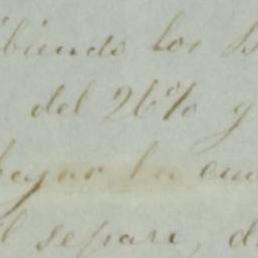 ibiendo los B
del 26% y
pagar la cu
l separe, d